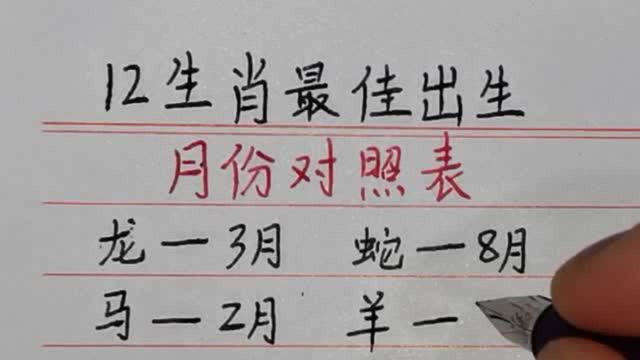 12生肖最佳出生
月份对照表
龙一3月 蛇一8月
马一2月 羊一